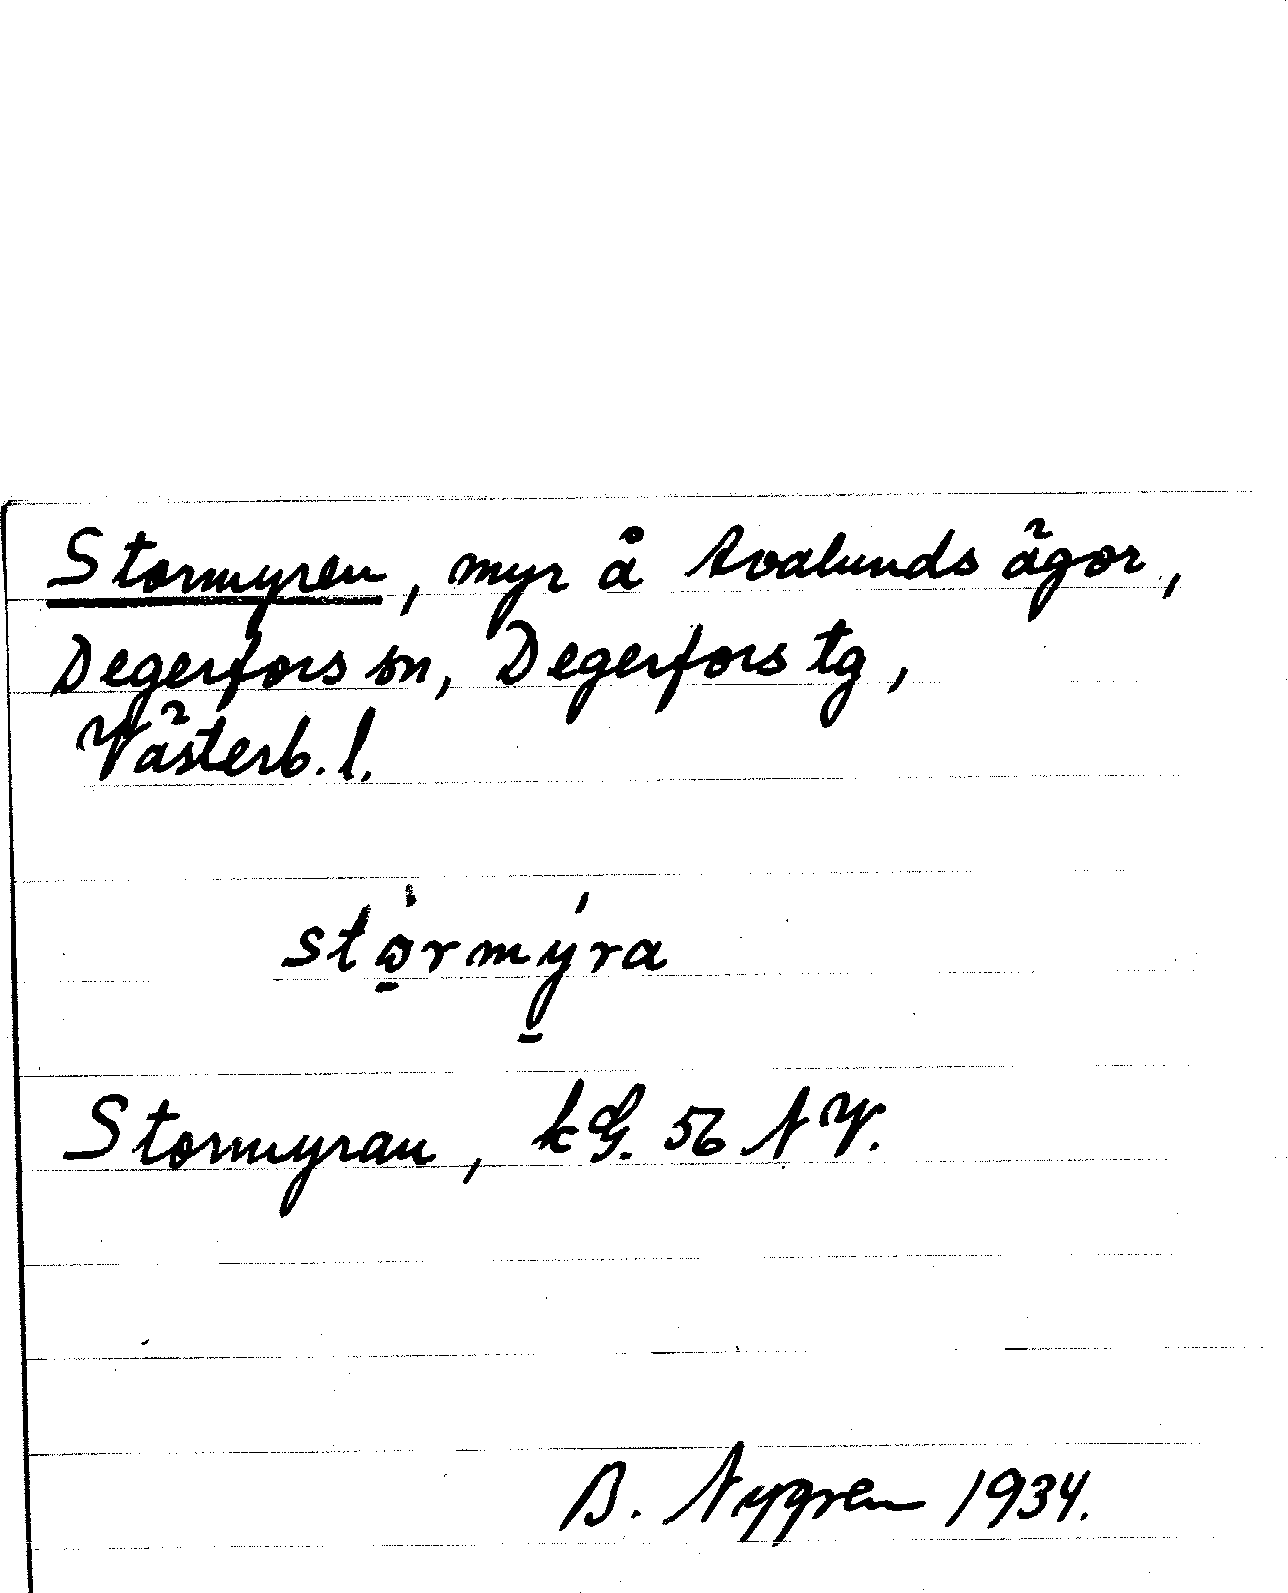 Stormyren, myr å Avalunds ägor,
Degerfors sn, Degerfors tg,
Västerb. l.
stormyra
Stormyran, kG. 56 NV.
B. Nygren 1934.